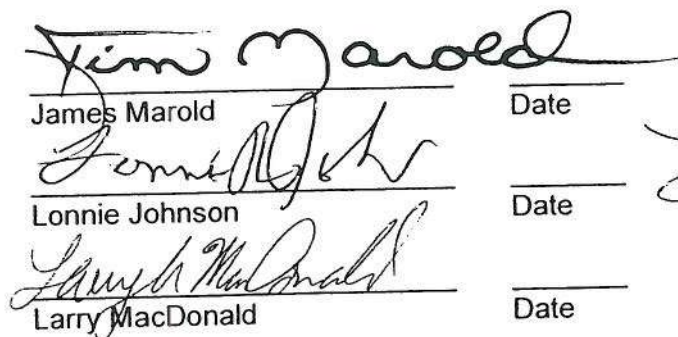 Jim Marold
James Marold Date
Lonnie R Joh
Lonnie Johnson Date
Larry A MacDonald
Larry MacDonald Date